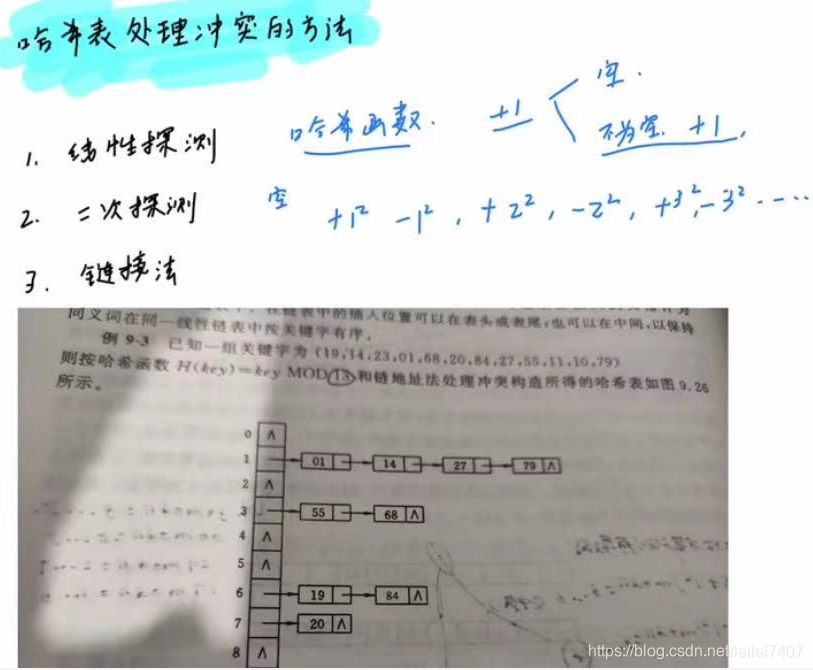 哈希表处理冲突的方法
1. 线性探测 哈希函数. +1 空.
不为空. +1,
2. 二次探测 空 +1² -1², +2², -2², +3², -3² ......
3. 链接法
在链表中的插入位置可以在表头或表尾;也可以在中间,以保持
同义词在同一线性链表中按关键字有序。
例 9-3 已知一组关键字为(19,14,23,01,68,20,84,27,55,11,10,79)
则按哈希函数 H(key)=key MOD 13 和链地址法处理冲突构造所得的哈希表如图9.26
所示。
0 ∧
1 01 14 27 79 ∧
2 ∧
3 55 68 ∧
4 ∧
5 ∧
6 19 84 ∧
7 20 ∧
8 ∧
https://blog.csdn.net/leilei7407